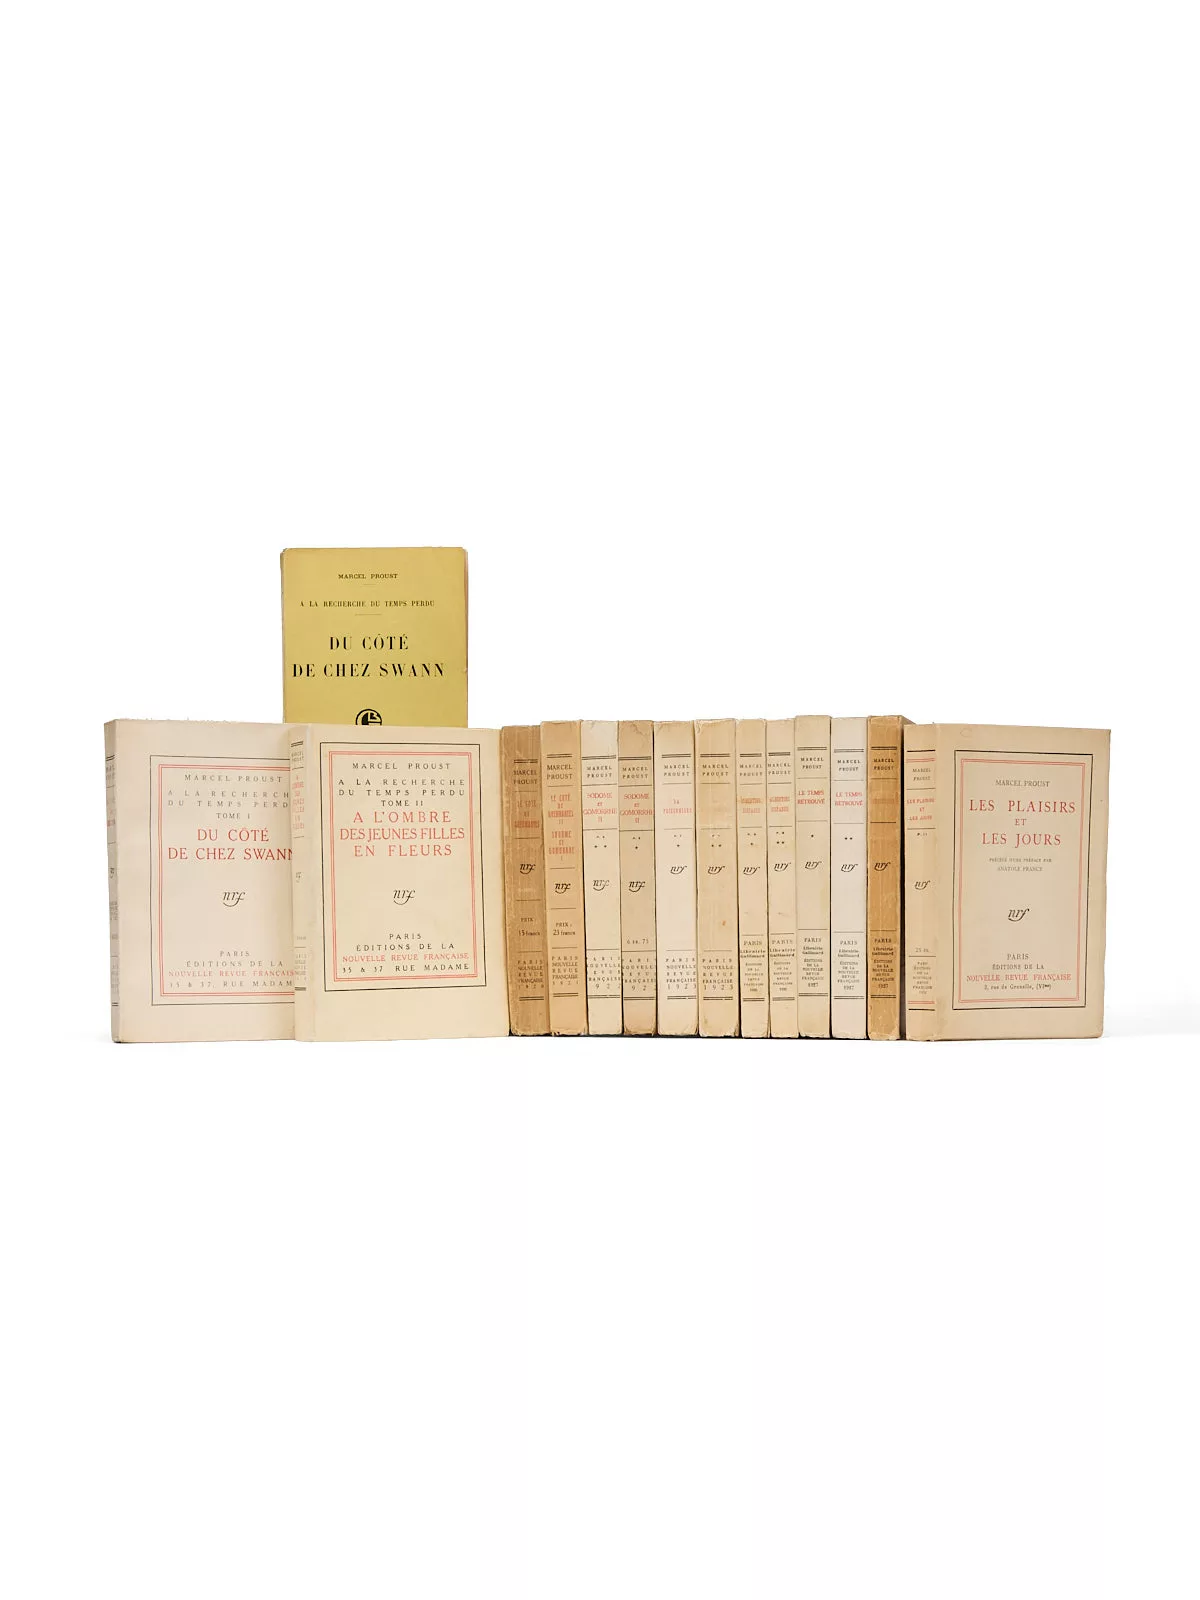 MARCEL PROUST
A LA RECHERCHE DU TEMPS PERDU
DU CÔTÉ
DE CHEZ SWANN
MARCEL PROUST
A LA RECHERCHE
DU TEMPS PERDU
TOME I
DU CÔTÉ
DE CHEZ SWANN
nrf
PARIS
ÉDITIONS DE LA
NOUVELLE REVUE FRANÇAISE
35 & 37, RUE MADAME
MARCEL PROUST
A LA RECHERCHE
DU TEMPS PERDU
TOME II
A L'OMBRE
DES JEUNES FILLES
EN FLEURS
nrf
PARIS
ÉDITIONS DE LA
NOUVELLE REVUE FRANÇAISE
35 & 37 RUE MADAME
MARCEL
PROUST
LE COTÉ
DE
GUERMANTES
nrf
PRIX :
15 francs
PARIS
NOUVELLE
REVUE
FRANÇAISE
1920
MARCEL
PROUST
LE COTÉ
DE
GUERMANTES
II
SODOME
ET
GOMORRHE
I
nrf
PRIX :
23 francs
PARIS
NOUVELLE
REVUE
FRANÇAISE
1921
MARCEL
PROUST
SODOME
et
GOMORRHE
II
nrf
PARIS
NOUVELLE
REVUE
FRANÇAISE
MARCEL
PROUST
SODOME
et
GOMORRHE
II
nrf
6 fr. 75
PARIS
NOUVELLE
REVUE
FRANÇAISE
MARCEL
PROUST
LA
PRISONNIÈRE
nrf
PARIS
NOUVELLE
REVUE
FRANÇAISE
1923
MARCEL
PROUST
nrf
PARIS
NOUVELLE
REVUE
FRANÇAISE
1923
MARCEL
PROUST
ALBERTINE
DISPARUE
nrf
PARIS
Librairie
Gallimard
ÉDITIONS
DE LA
NOUVELLE
REVUE
FRANÇAISE
MARCEL
PROUST
ALBERTINE
DISPARUE
nrf
PARIS
Librairie
Gallimard
ÉDITIONS
DE LA
NOUVELLE
REVUE
FRANÇAISE
MARCEL
PROUST
LE TEMPS
RETROUVÉ
*
nrf
PARIS
Librairie
Gallimard
ÉDITIONS
DE LA
NOUVELLE
REVUE
FRANÇAISE
1927
MARCEL
PROUST
LE TEMPS
RETROUVÉ
**
nrf
PARIS
Librairie
Gallimard
ÉDITIONS
DE LA
NOUVELLE
REVUE
FRANÇAISE
1927
MARCEL
PROUST
nrf
PARIS
Librairie
Gallimard
ÉDITIONS
DE LA
NOUVELLE
REVUE
FRANÇAISE
1927
MARCEL
PROUST
LES PLAISIRS
ET
LES JOURS
nrf
MARCEL PROUST
LES PLAISIRS
ET
LES JOURS
PRÉCÉDÉ D'UNE PRÉFACE PAR
ANATOLE FRANCE
nrf
PARIS
ÉDITIONS DE LA
NOUVELLE REVUE FRANÇAISE
3, rue de Grenelle, (VIme)